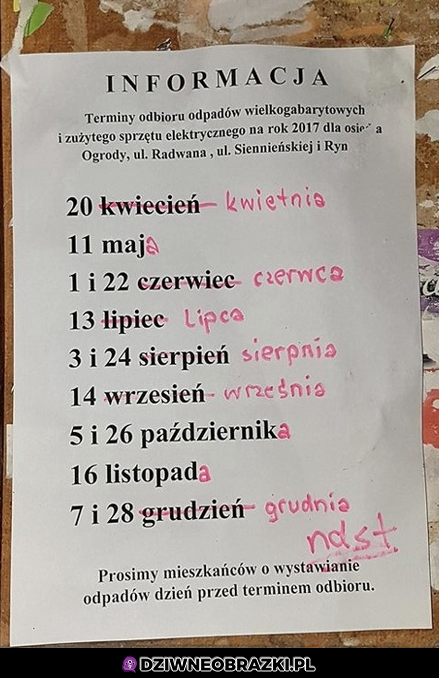 INFORMACJA
Terminy odbioru odpadów wielkogabarytowych
i zużytego sprzętu elektrycznego na rok 2017 dla osie a
Ogrody, ul. Radwana , ul. Siennieńskiej i Ryn
20 kwiecień kwietnia
11 maja
1 i 22 czerwiec czerwca
13 lipiec Lipca
3 i 24 sierpień sierpnia
14 wrzesień września
5 i 26 października
16 listopada
7 i 28 grudzień grudnia
ndst
Prosimy mieszkańców o wystawianie
odpadów dzień przed terminem odbioru.
DZIWNEOBRAZKI.PL